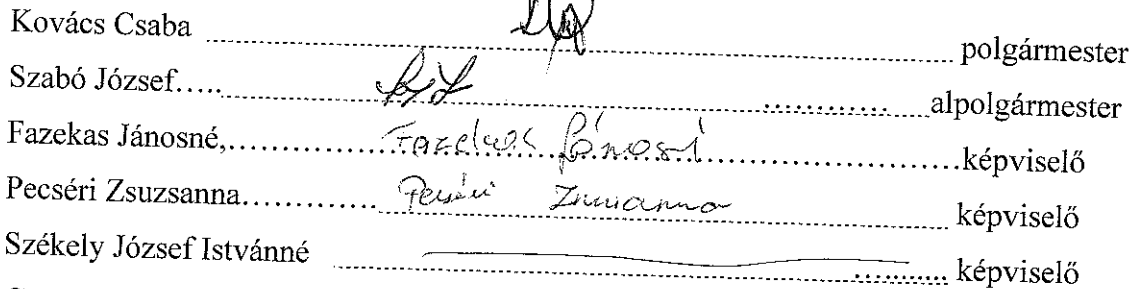 Kovács Csaba ........ polgármester
Szabó József..... ........ alpolgármester
Fazekas Jánosné,............. Fazekas Jánosné .............képviselő
Pecséri Zsuzsanna............. Pecséri Zsuzsanna ........ képviselő
Székely József Istvánné ........ képviselő